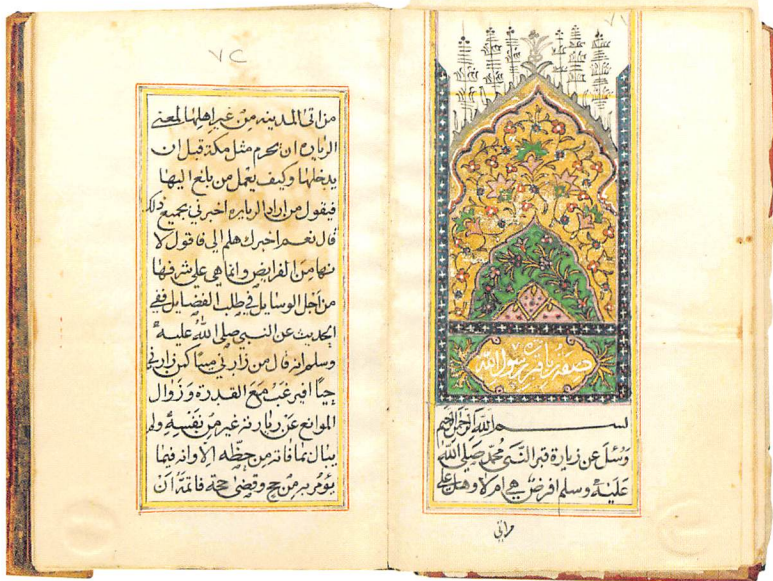 ٧١
صفة زيارة قبر رسول الله
بسم الله الرحمن الرحيم
وسئل عن زيارة قبر النبي محمد صلى الله
عليه وسلم افرض هي ام لا وهل على
من اتى
٧٢
من اتى المدينه من غير اهلها لمعنى
الزياره ان يحرم مثل مكة قبل ان
يدخلها وكيف يعمل من بلغ اليها
فيقول من اراد الزياره اخبرني بجميع ذلك
قال نعم اخبرك هلم الي فاقول لا
نها من الفرايض وانما هي علي شرفها
من اجل الوسايل في طلب الفضايل ففي
الحديث عن النبي صلى الله عليه
وسلم انه قال من زارني ميتا كمن زارني
حيا افيرغب مع القدرة وزوال
الموانع عن زيارته غير من نفسه ولم
يبال بما فاته من حظه الا وانه فيما
يؤمر به من حج وقضى حجه فاتمه ان